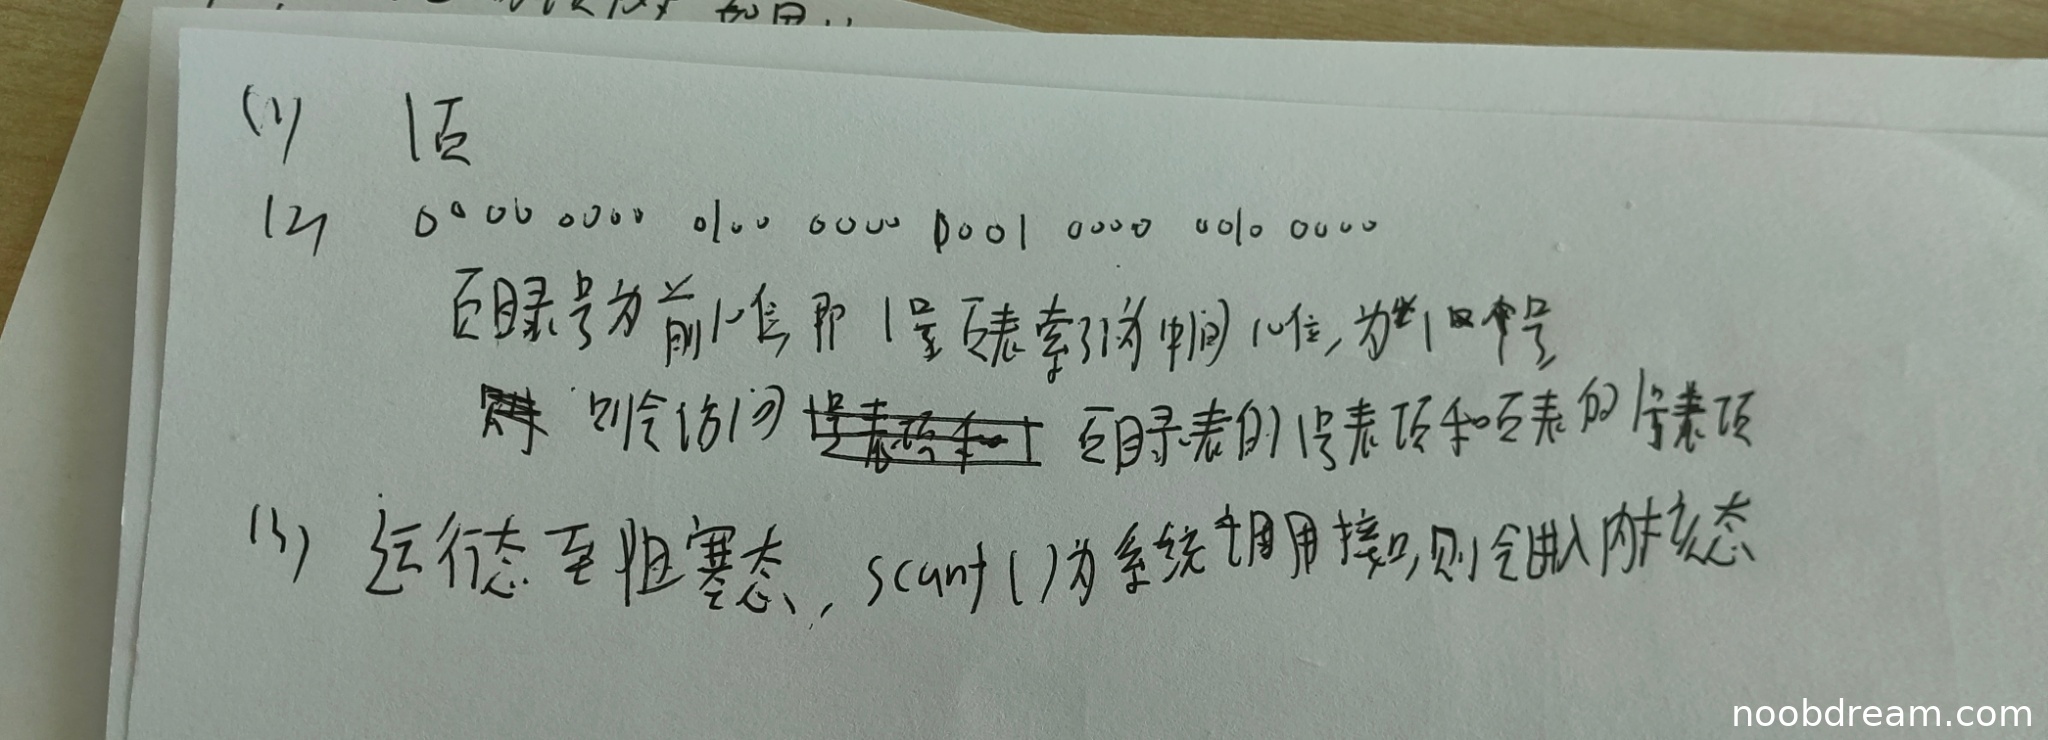 (1) 1页
(2) 0000 0000 0100 0000 0001 0000 0010 0000
页目录号为前10位即1号页表索引为中间10位,为1号
则会访问 页目录表的1号表项和页表的1号表项
(3) 运行态至阻塞态, scanf()为系统调用接口,则会进入内核态
noobdream.com